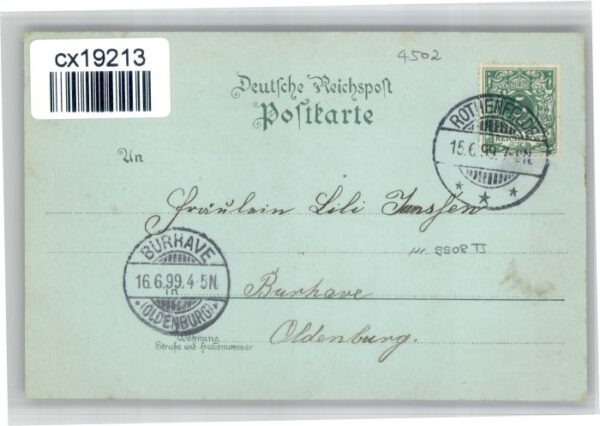 cx19213
4502
Deutsche Reichspost
Postkarte
ROTHENFELDE
15.6.99.7-8N.
REICHS
An
Fräulein Lili Janssen
Nr. 9908 II
BURHAVE
16.6.99.4-5N.
(OLDENBURG)
in
Burhave
Oldenburg.
Wohnung
Straße und Hausnummer